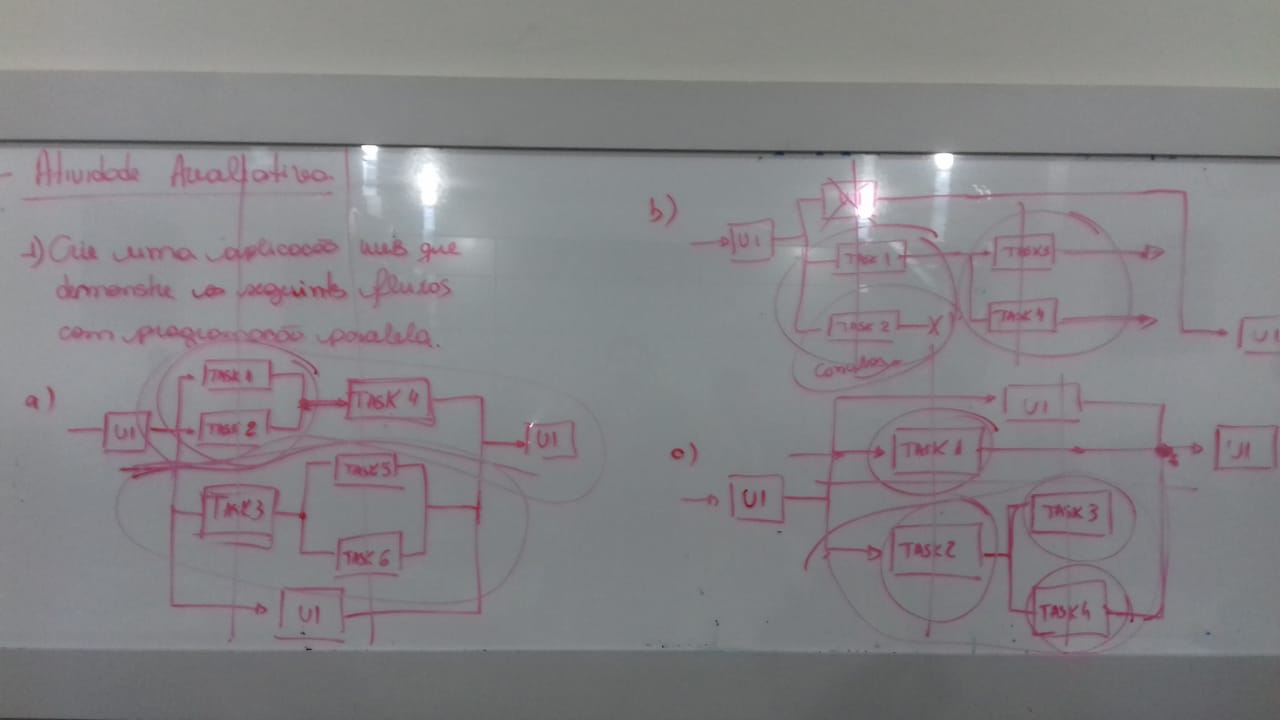 - Atividade Avaliativa
1) Crie uma aplicação web que
demonstre os seguintes fluxos
com programação paralela.
a)
UI
TASK 1
TASK 2
TASK 4
UI
TASK 3
TASK 5
TASK 6
UI
b)
UI
TASK 1
TASK 3
TASK 2
X
TASK 4
UI
c)
UI
UI
TASK 1
UI
TASK 2
TASK 3
TASK 4